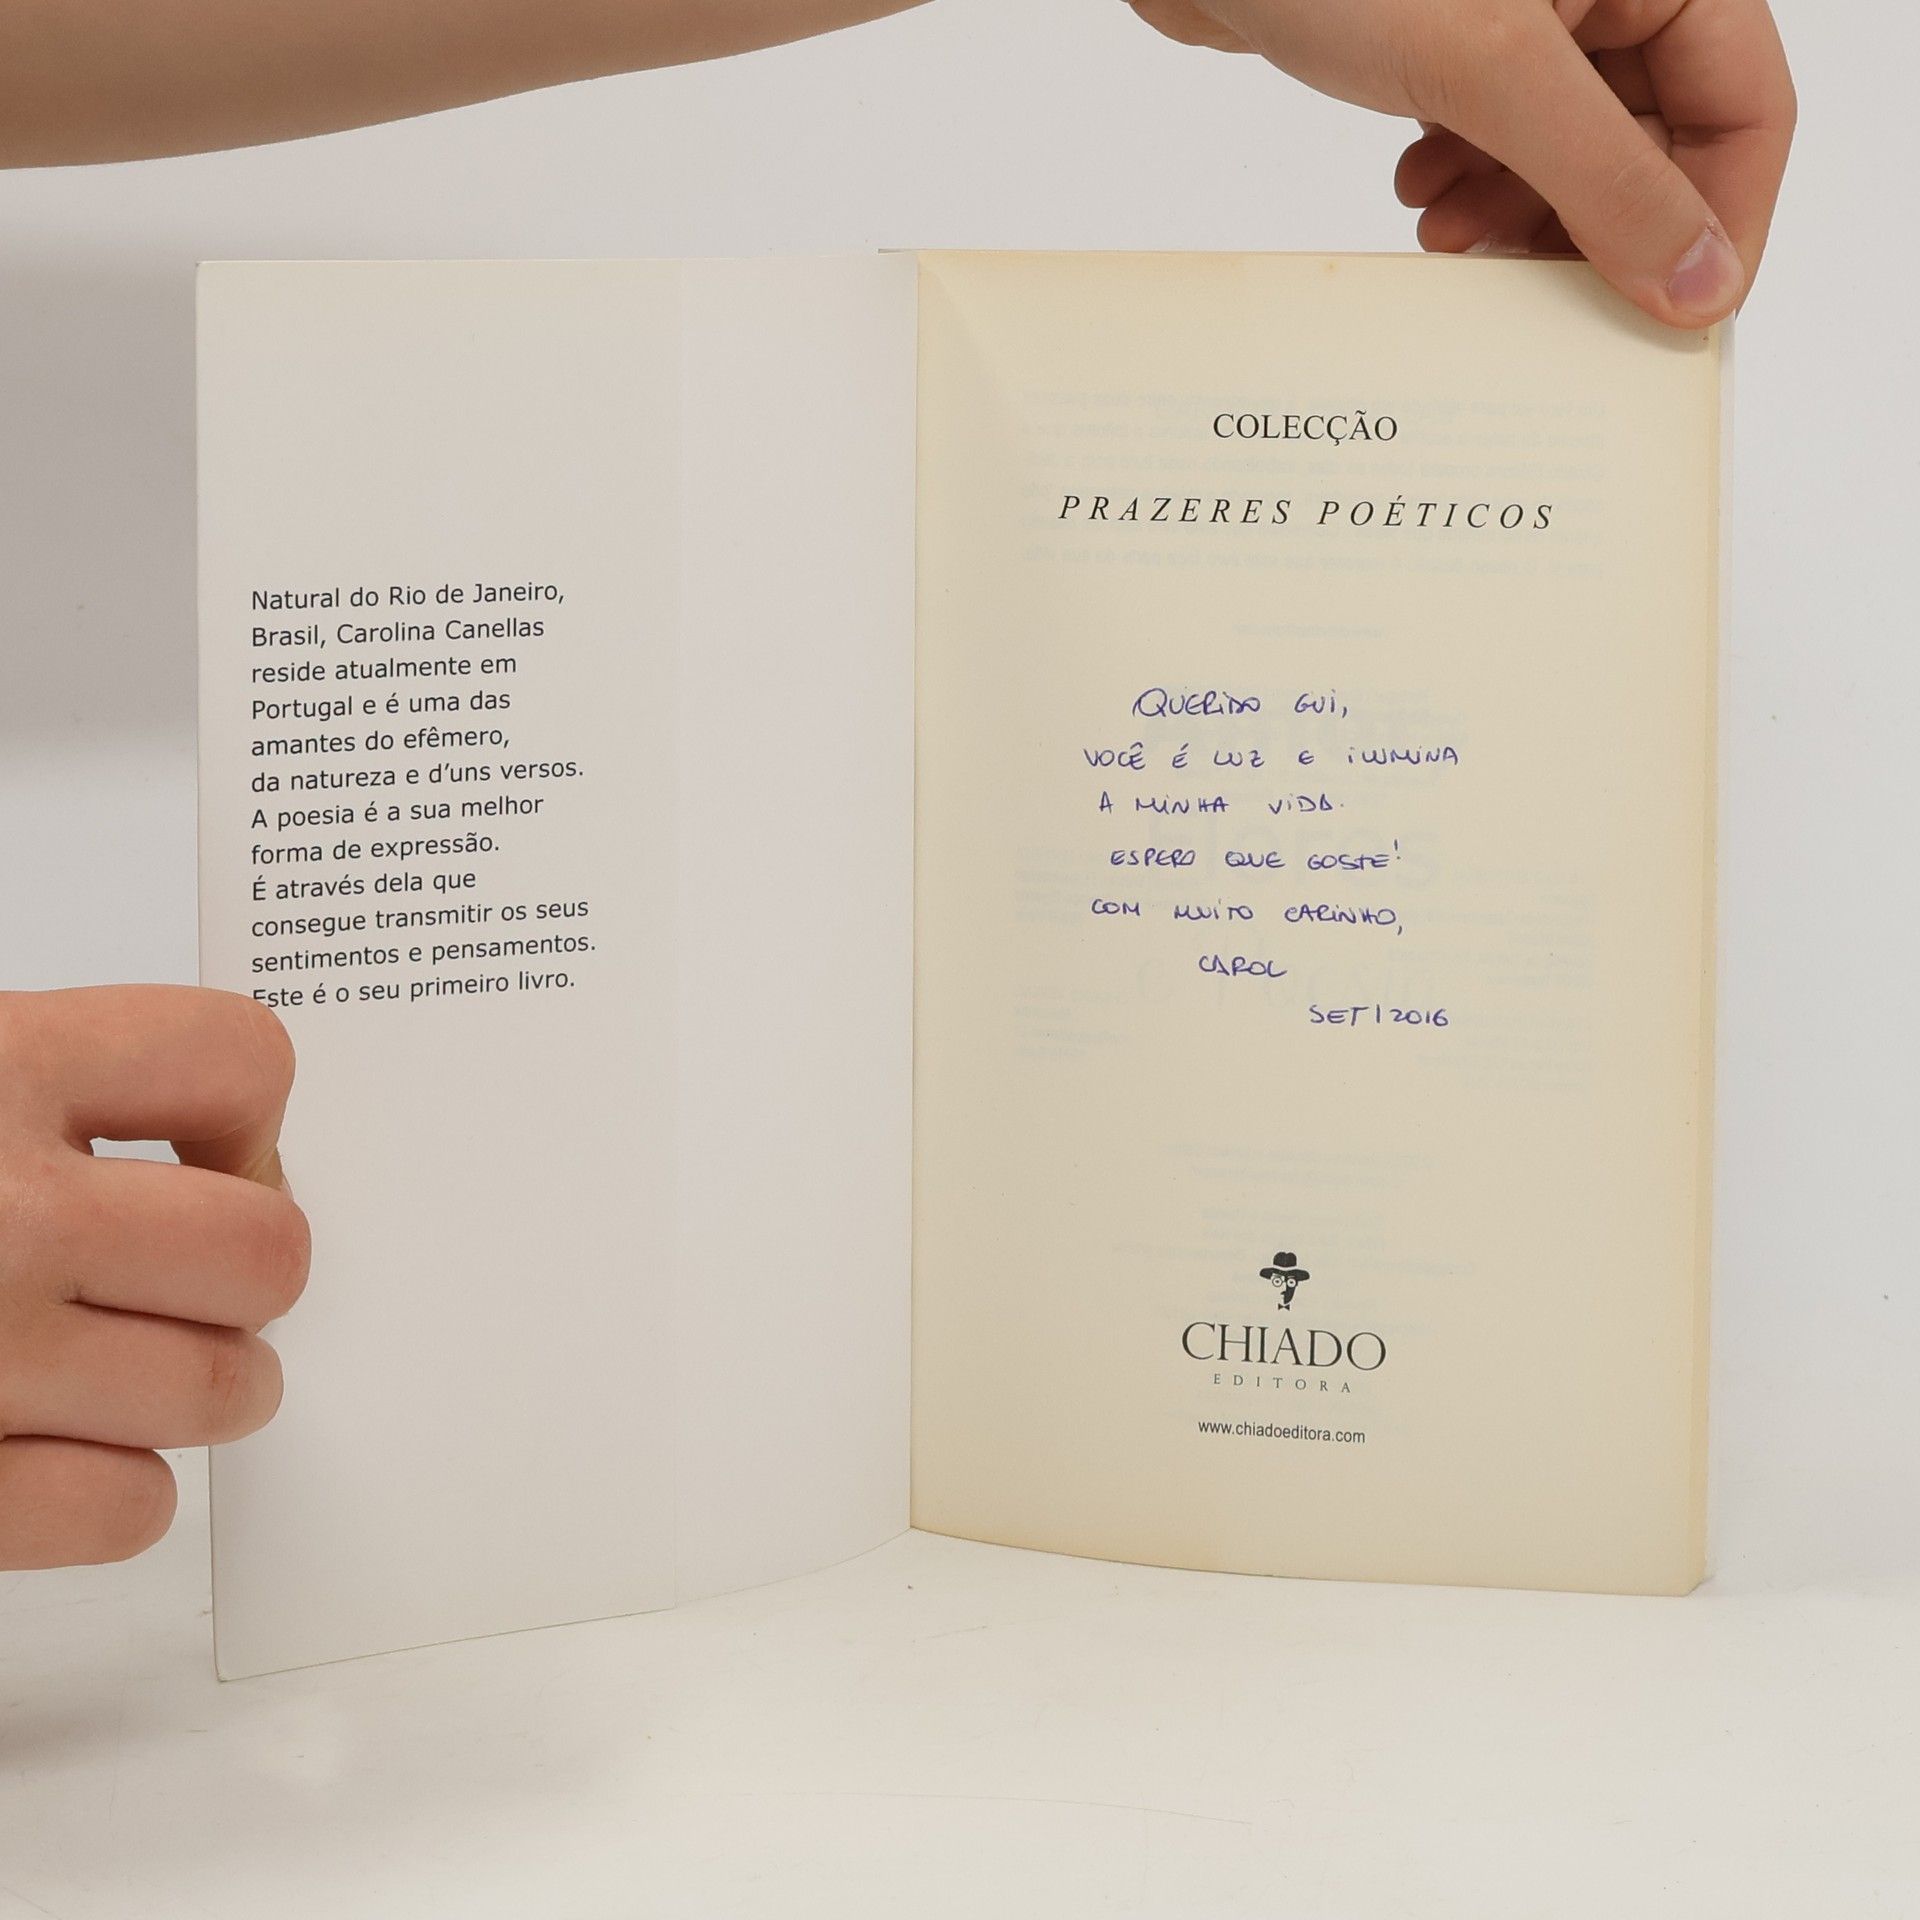 Natural do Rio de Janeiro,
Brasil, Carolina Canellas
reside atualmente em
Portugal e é uma das
amantes do efêmero,
da natureza e d'uns versos.
A poesia é a sua melhor
forma de expressão.
É através dela que
consegue transmitir os seus
sentimentos e pensamentos.
Este é o seu primeiro livro.
COLECÇÃO
PRAZERES POÉTICOS
QUERIDO GUI,
VOCÊ É LUZ E ILUMINA
A MINHA VIDA.
ESPERO QUE GOSTE!
COM MUITO CARINHO,
CAROL
SET/2016
CHIADO
EDITORA
www.chiadoeditora.com